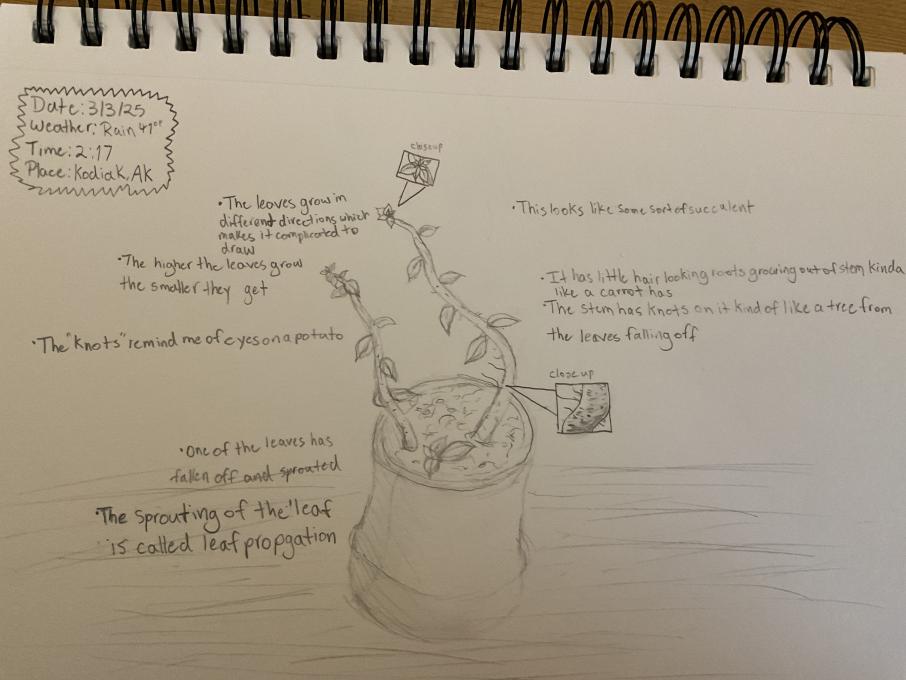 Date: 3/3/25
Weather: Rain 41°F
Time: 2:17
Place: Kodiak, Ak
closeup
•The leaves grow in
different directions which
makes it complicated to
draw
•The higher the leaves grow
the smaller they get
•The "knots" remind me of eyes on a potato
•One of the leaves has
fallen off and sprouted
•The sprouting of the leaf
is called leaf propgation
•This looks like some sort of succulent
•It has little hair looking roots growing out of stem kinda
like a carrot has
•The stem has knots on it kind of like a tree from
the leaves falling off
close up